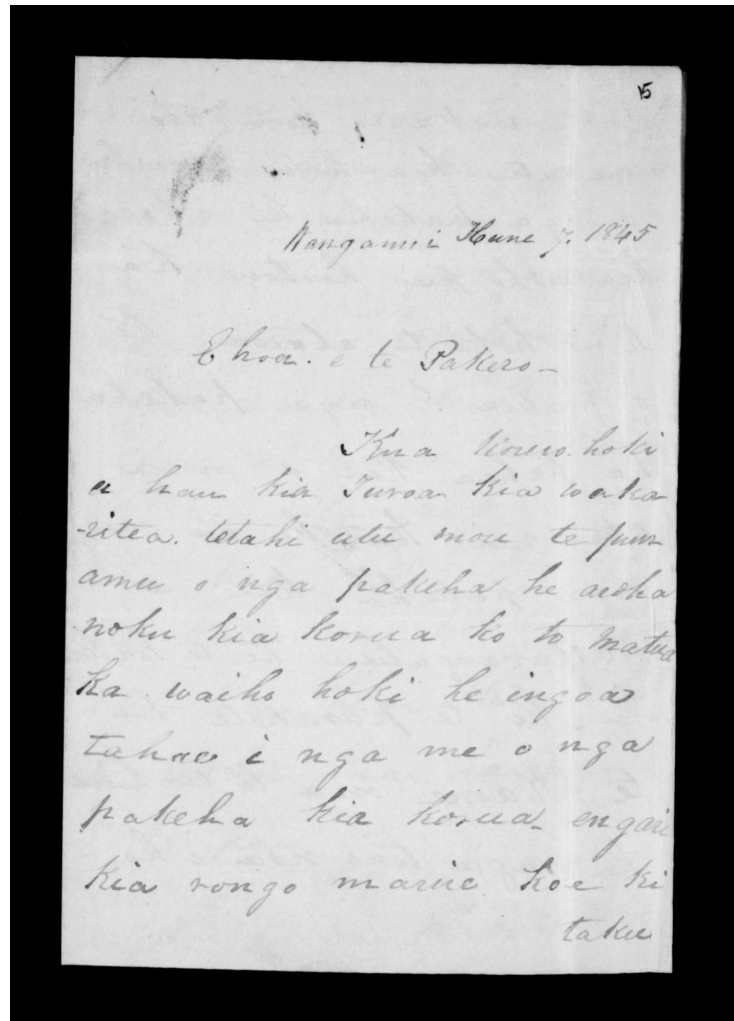 15
Wanganui Hune 7. 1845
E hoa. e te Pakero -
Kua korero. hoki
a hau kia Turoa kia waka
-ritea. tetahi utu mou te puru
amu o nga pakeha he aroha
noku kia korua ko to Matua
ka waiho hoki he ingoa
tahae i nga me o nga
pakeha kia korua - engari
kia rongo marie koe ki
taku